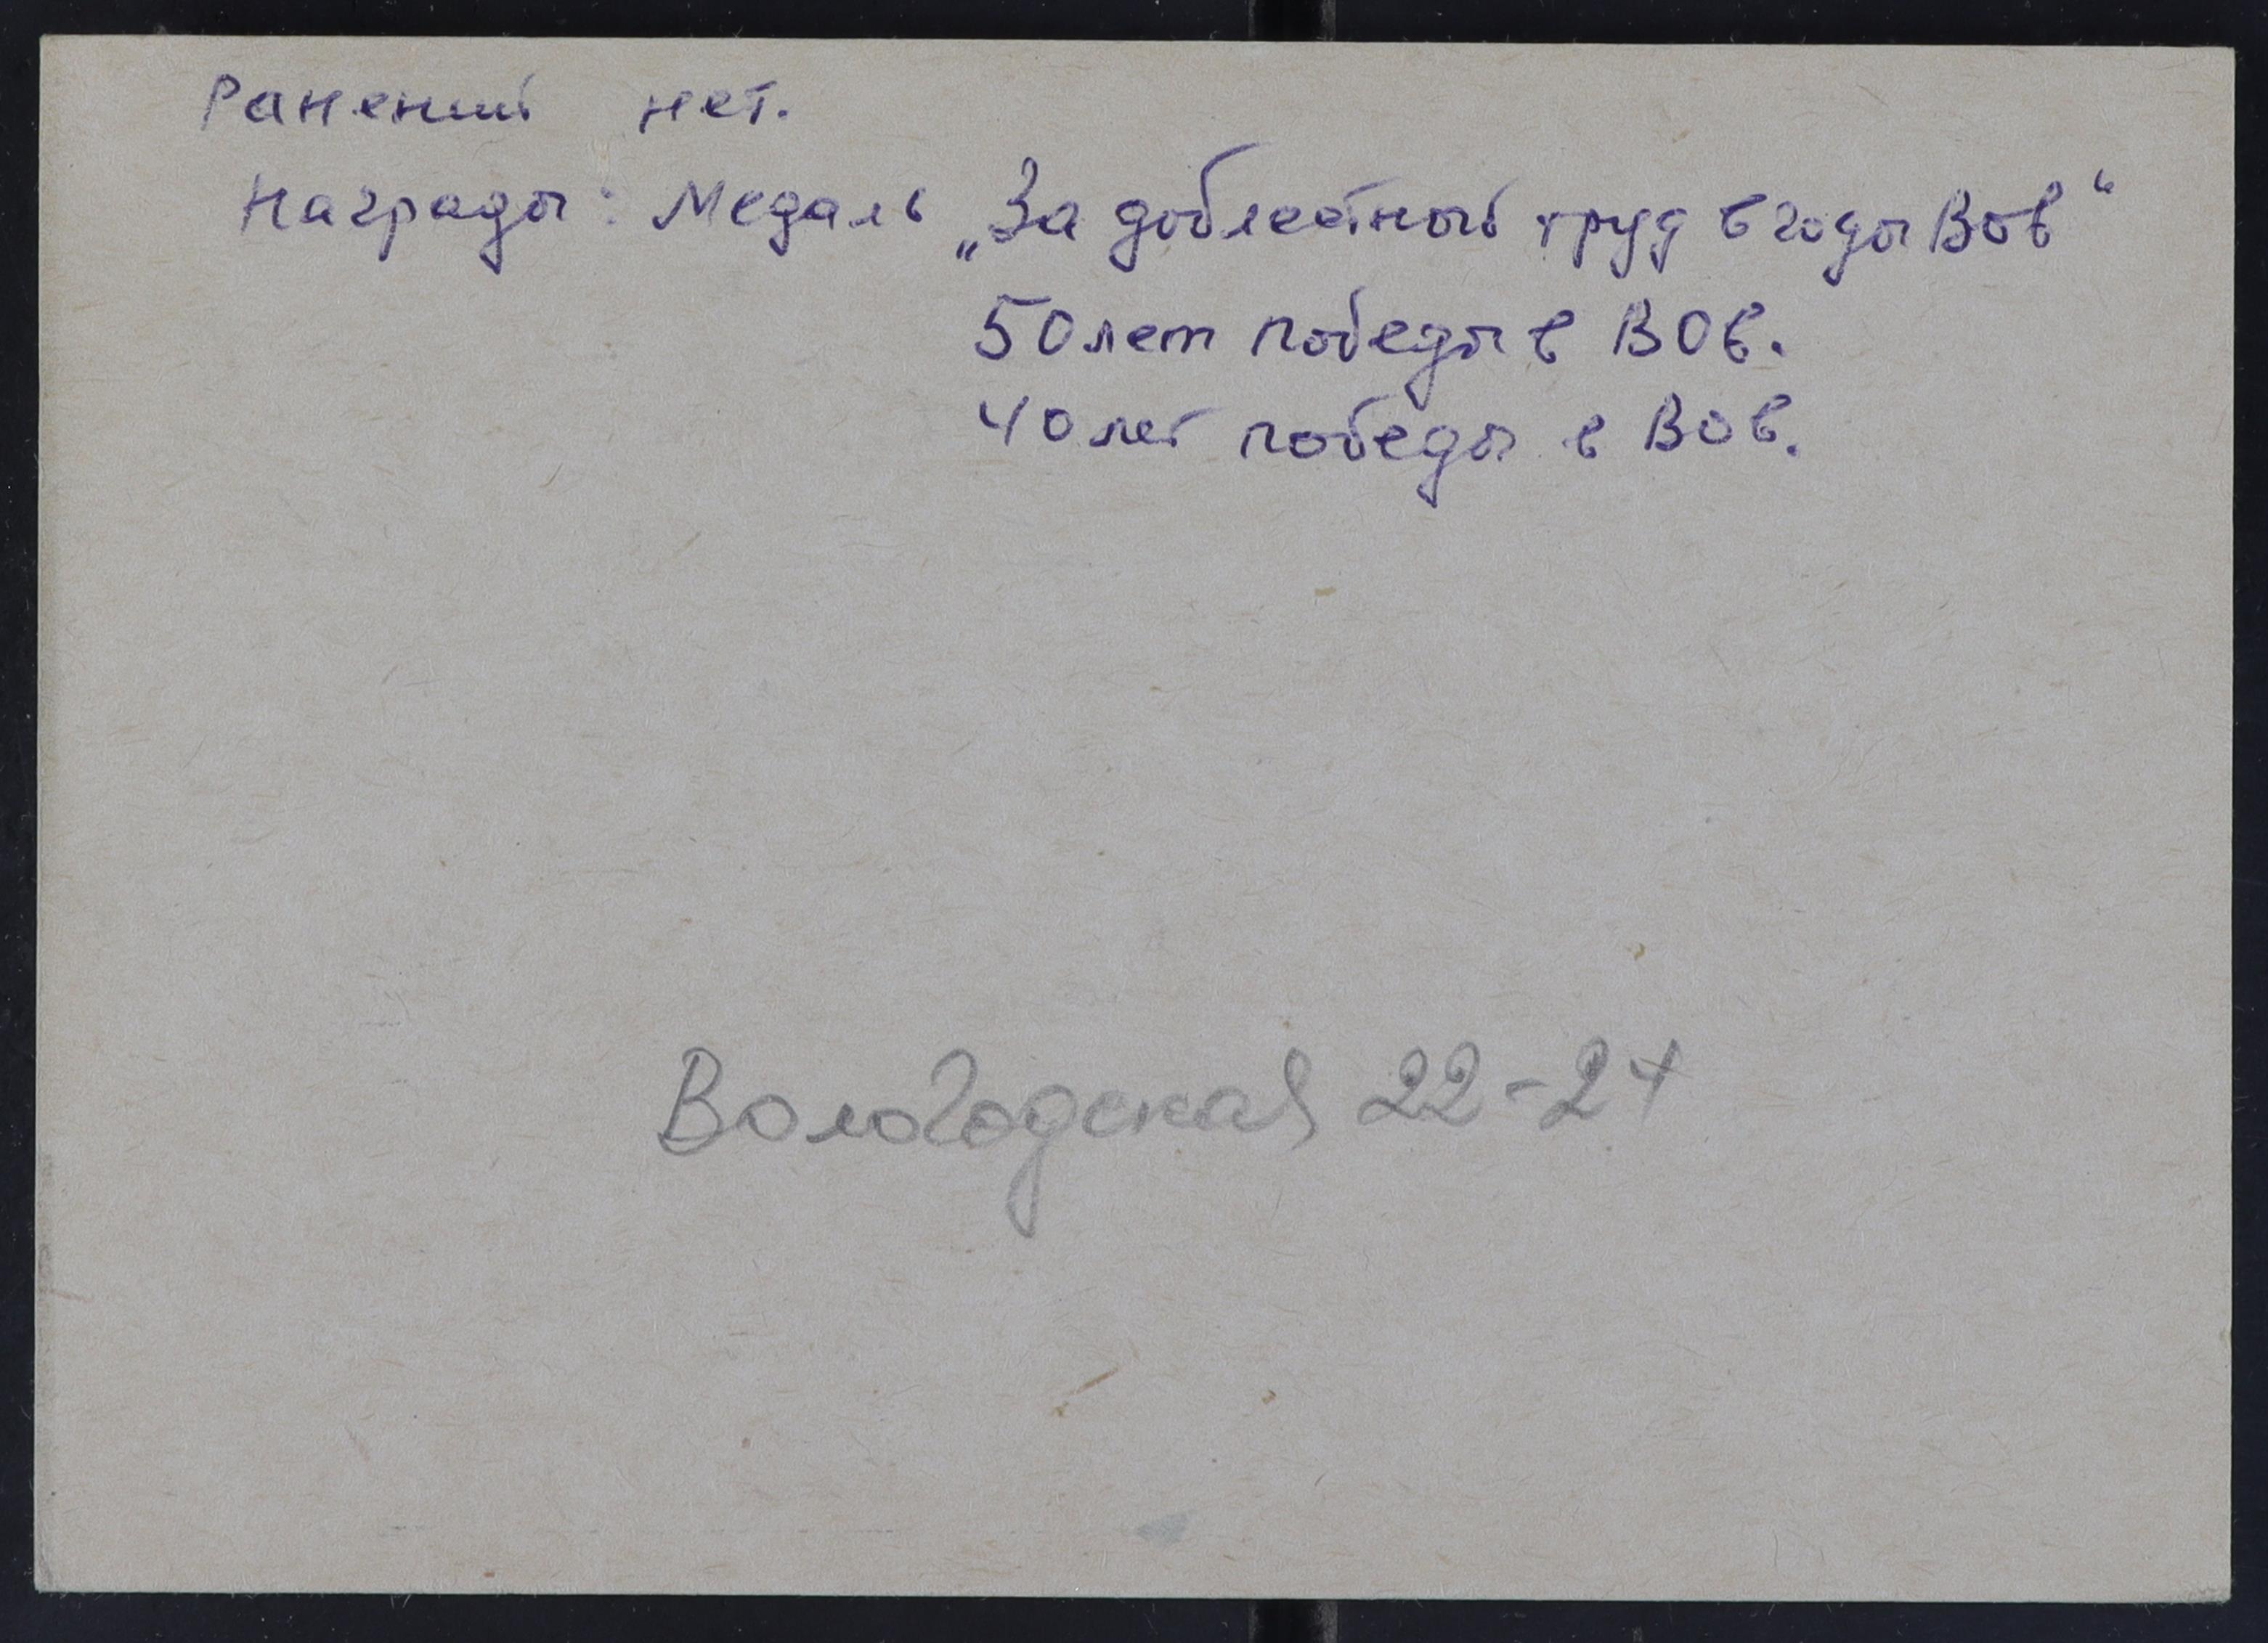 Ранений нет.
Награды: Медаль „За доблестный труд в годы ВОв“
50 лет победы в ВОв.
40 лет победы в ВОв.
Вологодская 22-24